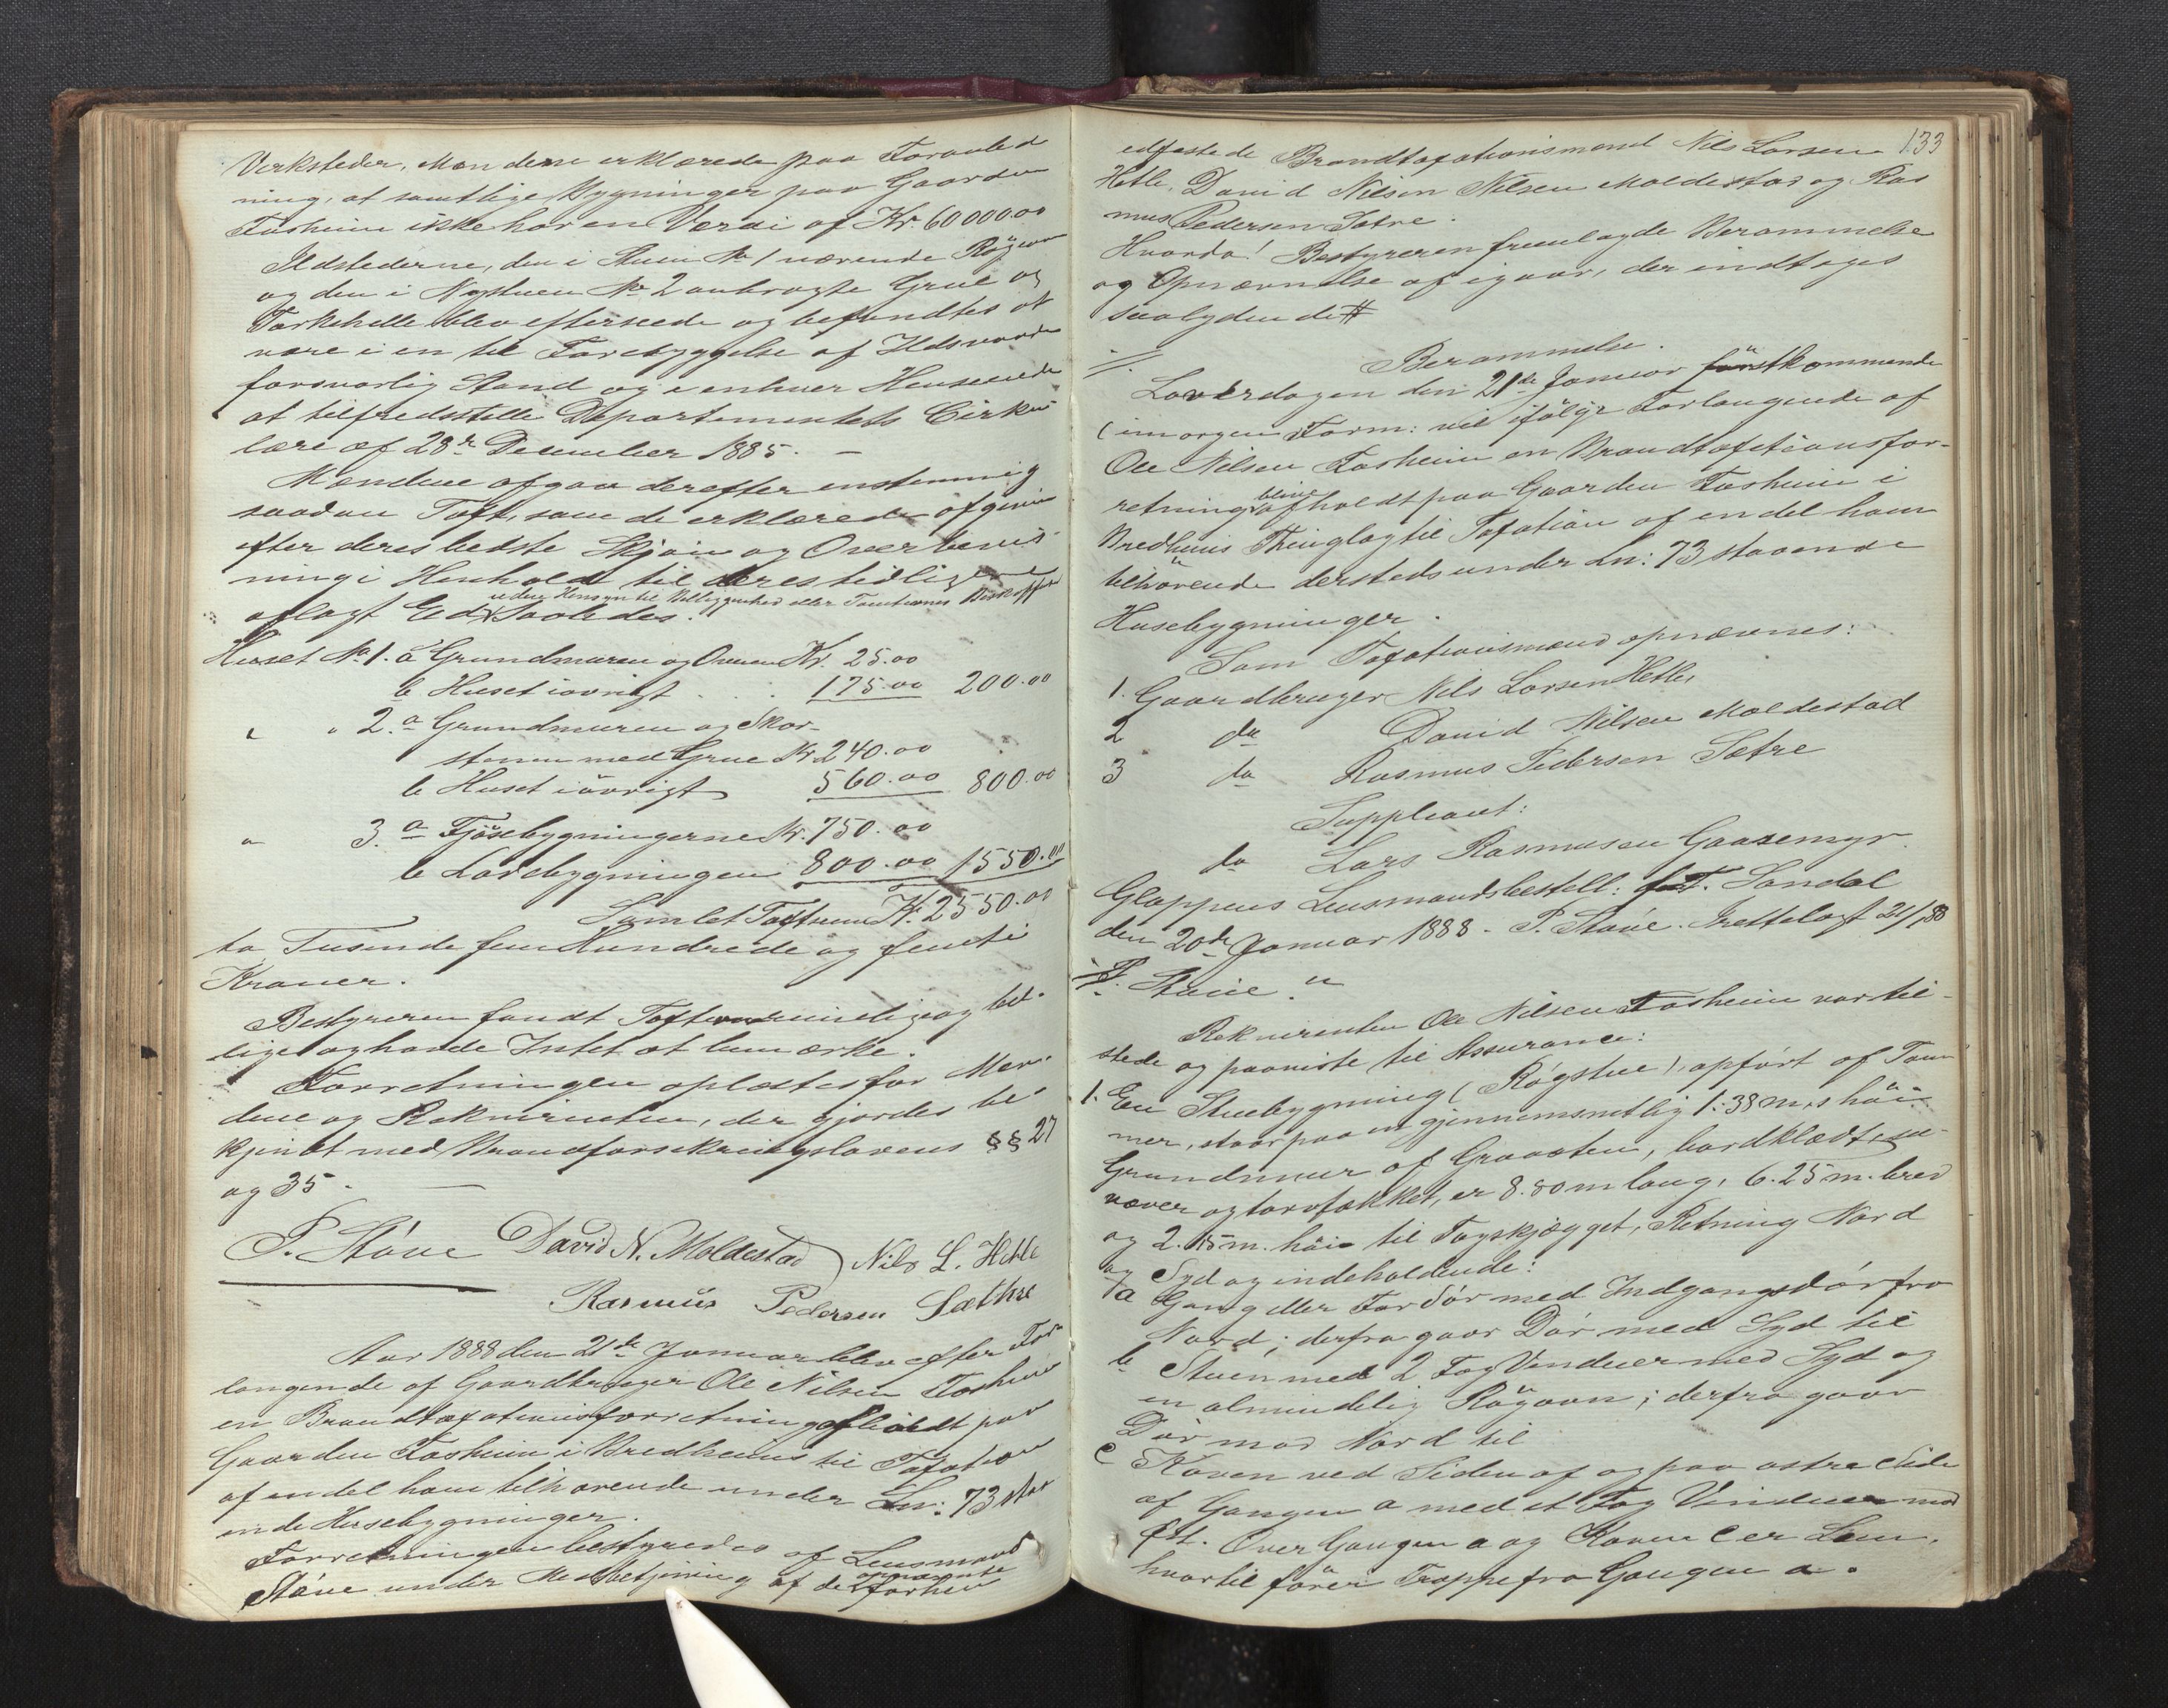 Verksteder, Men dene erklærede paa Foranled
ning, at samtlige Bygninger paa Gaarden
Fosheim ikke har en Værdi af Kr. 60 000.00
Ildstederne, den i Stuen No 1 værende Røgovn
og den i Nystuen No 2 anbragte Grue og
Tørkehelle blev efterseede og befandtes at
være i en til Forebyggelse af Ildsvaade
forsvarlig Stand og i enhver Henseende
at tilfredsstille Departementets Cirku
lære af 28de December 1885. —
Mændene afgav derefter enstemmig
saadan Taxt, som de erklærede afgiven
efter deres bedste Skjøn og Overbevis-
ning i Henhold til deres tidligere
uden Hensyn til Beliggenhed eller Tomternes Beskaffenhed
aflagt Ed Saaledes:
Huset No 1. a Grundmuren og Ovnen Kr. 25.00
b Huset iøvrigt . . . 175.00 200.00
" " 2. a Grundmuren og Skor-
stenen med Grue Kr. 240.00
b Huset iøvrigt 560.00 800.00
" 3. a Fjøsebygningerne Kr. 750.00
b Ladebygningen 800.00 1550.00
Samlet Taxtsum Kr. 2550.00
to Tusinde fem Hundrede og femti
Kroner.
Bestyreren fandt Taxten rimelig og bil-
lig og havde Intet at bemærke.
Forretningen oplæstes for Mæn-
dene og Rekvirenten, der gjordes be-
kjendt med Brandforsikringslovens §§ 27
og 35. —
P. Støve David N. Moldestad Nils L. Hetle
Rasmus Pedersen Sæthre
Aar 1888 den 21de Januar blev efter For
langende af Gaardbruger Ole Nilsen Fosheim
en Brandtaxationsforretning afholdt paa
Gaarden Fosheim i Bredheims til Taxation
af endel ham tilhørende under Ln: 73 staa
ende Husebygninger.
Forretningen bestyredes af Lensmand
opnævnte
Støve under Medbetjening af de forhen
133
edfæstede Brandtaxationsmænd Nils Larsen
Hetle, David Nilsen Nilsen Moldestad og Ras
mus Pedersen Sætre.
Hvorda! Bestyreren fremlagde Berammelse
og Opnævnelse af igaar, der indtages
saalydende #
·//. Berammelse.
Løverdagen den 21de Januar førstkommende
(imorgen) Form: vil ifølge Forlangende af
Ole Nilsen Fosheim en Brandtaxtionsfor-
blive
retning afholdt paa Gaarden Fosheim i
Bredheims Thinglag til Taxation af endel ham
tilhørende dersteds under Ln: 73 staaende
Husebygninger.
Som Taxationsmænd opnævnes:
1. Gaardbruger Nils Larsen Hetle,
2 do David Nilsen Moldestad
3 do Rasmus Pedersen Sætre
Suppleant:
do Lars Rasmusen Gaasemyr.
Gloppens Lensmandsbestill: pT. Sandal
den 20de Januar 1888 - P. Støve. Rettelagt 21/1 88
P. Støve "
Rekvirenten Ole Nilsen Fosheim var til-
stede og paaviste til Assurance:
1. En Stuebygning (Røgstue), opført af Tøm
mer, staar paa en gjennemsnitlig 1:38 m. høi
Grundmur af Graasten, bordklædt, 
næver og torvtækket, er 8.80 m lang, 6.25 m. bred
og 2.15 m. høi til Tagskjægget, Retning Nord
og Syd og indeholdende:
a Gang eller Fordør med Indgangsdør fra
Nord; derfra gaar Dør med Syd til
b Stuen med 2 Fag Vinduer mod Syd og
en almindelig Røgovn; derfra gaar
Dør mod Nord til
c Koven ved Siden af og paa østre Side
af Gangen a med et Fag Vinduer mod
Øst. Over Gangen a og Koven c er Lem,
hvortil fører Trappe fra Gangen a.